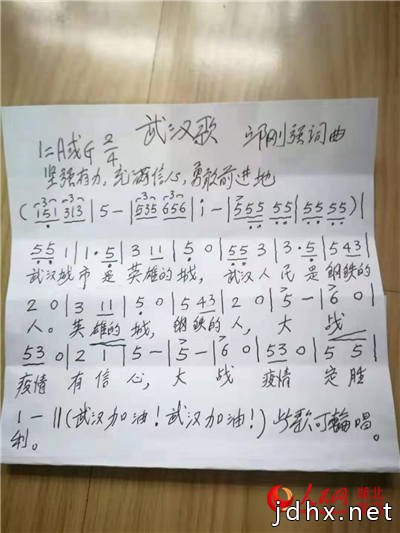 武汉歌 邹刚强词曲
1=A或G 2/4
坚强有力,充满信心,勇敢前进地
(151 313|5-|535 656|i-|555 55|55 55)|
551|1·5|3 11|5 0|55 3|3·5|543|
武汉城市是英雄的城,武汉人民是钢铁的
20|3 11|5 0|543|20|5-|60|
人。英雄的城,钢铁的人,大战
530|21|5-|5-|60|530|55|
疫情有信心,大战疫情定胜
1-‖(武汉加油!武汉加油!)此歌可轮唱。
利。
人民网 湖北
jdhx.net